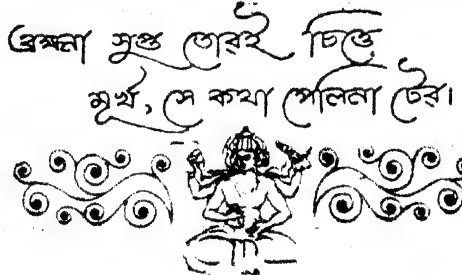 ব্রহ্মা সুপ্ত তোরই চিত্তে
মূর্খ, সে কথা পেলিনা টের।